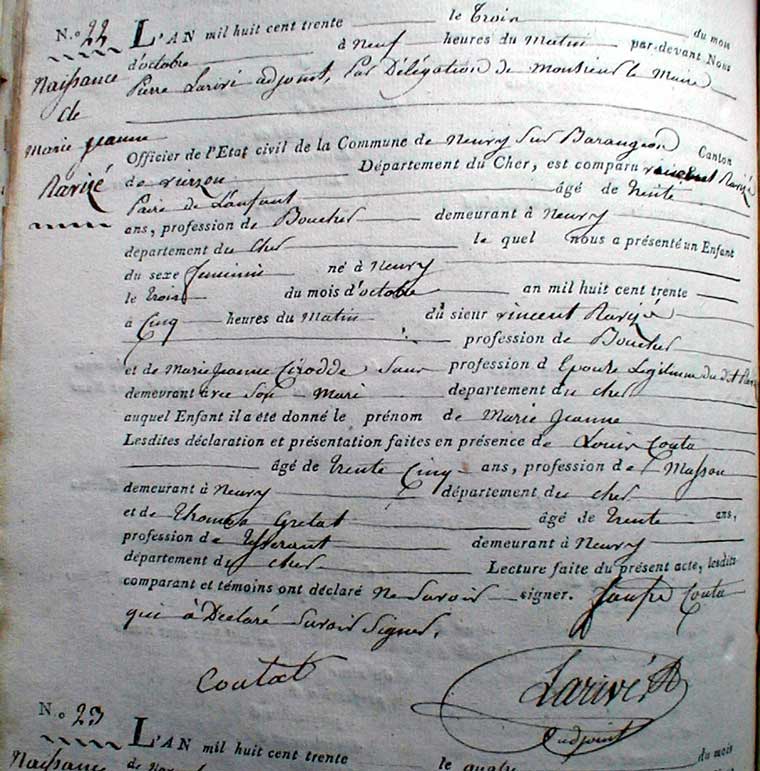 N.º 22
Naissance
de
Marie Jeanne
Rarizé
L'AN mil huit cent trente le Trois du mois
d'octobre à Neuf heures du Matin par-devant Nous
Pierre Larivé adjoint, Par Délégation de Monsieur le Maire
Officier de l'Etat civil de la Commune de Neuvy Sur Barangeon Canton
de vierzon Département du Cher, est comparu vincent Rarizé
Paire de L'anfant âgé de trente
ans, profession de Boucher demeurant à Neuvy
département du Cher le quel nous a présenté un Enfant
du sexe feminin né à Neuvy
le trois du mois d'octobre an mil huit cent trente
à Cinq heures du Matin du sieur vincent Rarizé
profession de Boucher
et de Marie Jeanne Cirodde Sans profession d Epouse Legitimme du dit
demeurant avec Son Mari département du cher
auquel Enfant il a été donné le prénom de Marie Jeanne
Lesdites déclaration et présentation faites en présence de Louis Couta
âgé de trente Cinq ans, profession de Masson
demeurant à Neuvy département du cher
et de Thomas Gretat âgé de trente ans,
profession de tisserant demeurant à Neuvy
département du cher Lecture faite du présent acte, lesdits
comparant et témoins ont déclaré Ne Savoir signer. Couta
qui à Déclaré Savoir Signer,
Coutat
Larivé
adjoint
N.º 23
L'AN mil huit cent trente le quatre du mois
Naissance